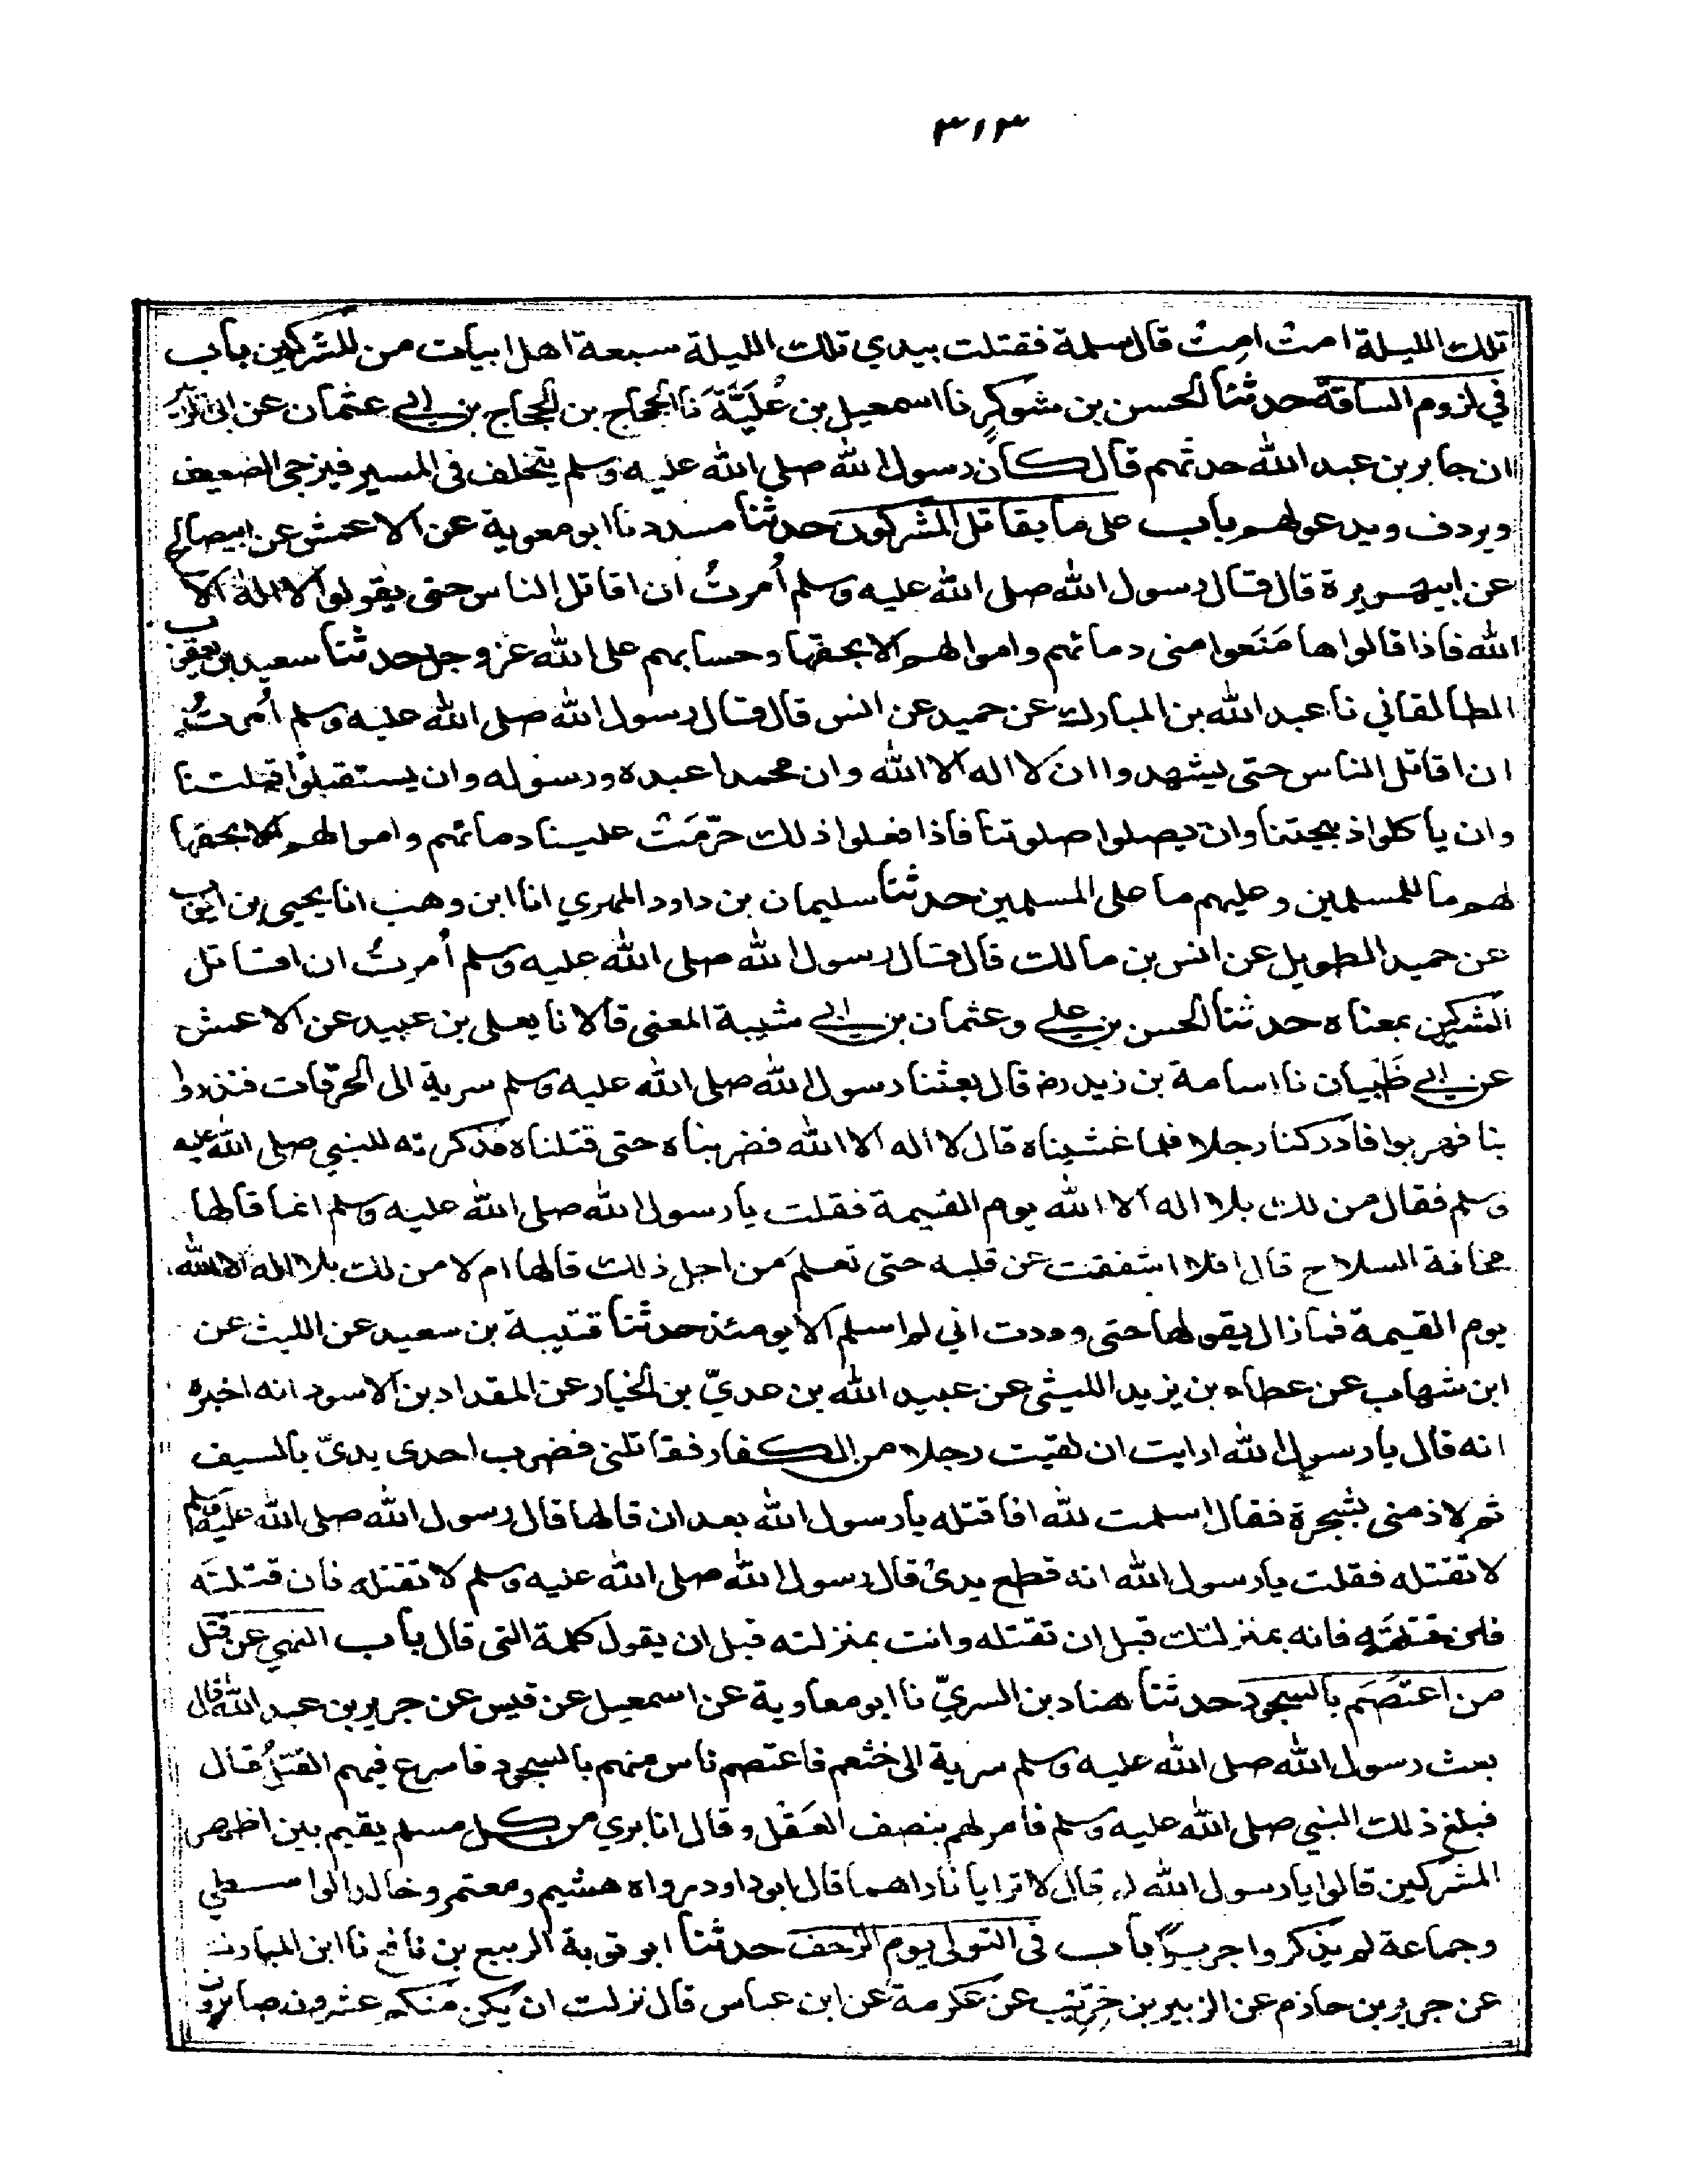 ٣١٣
تلك الليلة امِتْ امِتْ قال سلمة فقتلت بيدي تلك الليلة سبعة اهل ابيات من المشركين باب
في لزوم الساقة حدثنا الحسن بن شوكرٍ نا اسمعيل بن عُلَيَّةَ نا الحجاج بن الحجاج بن ابي عثمان عن ابى الزبير
ان جابر بن عبد الله حدثهم قال كان رسول الله صلى الله عليه وسلم يتخلف فى المسير فيزجى الضعيف
ويردف ويدعو لهم باب على ما يقاتل المشركون حدثنا مسدد نا ابو معوية عن الاعمش عن ابيصالح
عن ابيهريرة قال قال رسول الله صلى الله عليه وسلم اُمرتُ ان اقاتل الناس حتى يقولوا لا اله الا
الله فاذا قالوا ها مَنَعوا منى دمائهم واموالهم الا بحقها وحسابهم على الله عز وجل حدثنا سعيد بن يعقوب
الطالقاني نا عبد الله بن المبارك عن حميد عن انس قال قال رسول الله صلى الله عليه وسلم اُمرتُ
ان اقاتل الناس حتى يشهدوا ان لا اله الا الله وان محمدا عبده ورسوله وان يستقبلوا قبلتنا
وان ياكلوا ذبيحتنا وان يصلوا صلوتنا فاذا فعلوا ذلك حرّمَتْ علينا دمائهم واموالهم الا بحقها
لهم ما للمسلمين وعليهم ما على المسلمين حدثنا سليمان بن داود المهري انا ابن وهب انا يحيى بن ايوب
عن حميد الطويل عن انس بن مالك قال قال رسول الله صلى الله عليه وسلم اُمرتُ ان اقاتل
المشركين بمعناه حدثنا الحسن بن علي وعثمان بن ابي شيبة المعنى قالا نا يعلى بن عبيد عن الاعمش
عن ابي ظَبيان نا اسامة بن زيد رض قال بعثنا رسول الله صلى الله عليه وسلم سرية الى الحرقات فنذروا
بنا فهربوا فادركنا رجلا فلما غشيناه قال لا اله الا الله فضربناه حتى قتلناه فذكرته للنبي صلى الله عليه
وسلم فقال من لك بلا اله الا الله يوم القيمة فقلت يا رسول الله صلى الله عليه وسلم انما قالها
مخافة السلاح قال افلا شققت عن قلبه حتى تعلم من اجل ذلك قالها ام لا من لك بلا اله الا الله
يوم القيمة فما زال يقولها حتى وددت اني لم اسلم الا يومئذ حدثنا قتيبة بن سعيد عن الليث عن
ابن شهاب عن عطاء بن يزيد الليثى عن عبيد الله بن عديّ بن الخيار عن المقداد بن الاسود انه اخبره
انه قال يا رسول الله ارايت ان لقيت رجلا من الكفار فقاتلنى فضرب احدى يديّ بالسيف
ثم لاذ منى بشجرة فقال اسلمت لله افاقتله يا رسول الله بعد ان قالها قال رسول الله صلى الله عليه وسلم
لا تقتله فقلت يا رسول الله انه قطع يدى قال رسول الله صلى الله عليه وسلم لا تقتله فان قتلتَه
فانه بمنزلتك قبل ان تقتله وانت بمنزلته قبل ان يقول كلمة التى قال باب النهي عن قتل
من اعتصَم بالسجود حدثنا هناد بن السريّ نا ابو معاوية عن اسمعيل عن قيس عن جرير بن عبد الله قال
بعث رسول الله صلى الله عليه وسلم سرية الى خثعم فاعتصم ناس منهم بالسجود فاسرع فيهم القتلُ قال
فبلغ ذلك النبي صلى الله عليه وسلم فامر لهم بنصف العَقْل وقال انا بري من كل مسلم يقيم بين اظهر
المشركين قالوا يا رسول الله لم قال لا ترايا ناراهما قال ابو داود رواه هشيم ومعتمر وخالد الواسطي
وجماعة لم يذكروا جريرا باب فى التولى يوم الزحف حدثنا ابو توبة الربيع بن نافع نا ابن المبارك
عن جرير بن حازم عن الزبير بن خِرِّيتٍ عن عكرمة عن ابن عباس قال نزلت ان يكن منكم عشرون صابرون